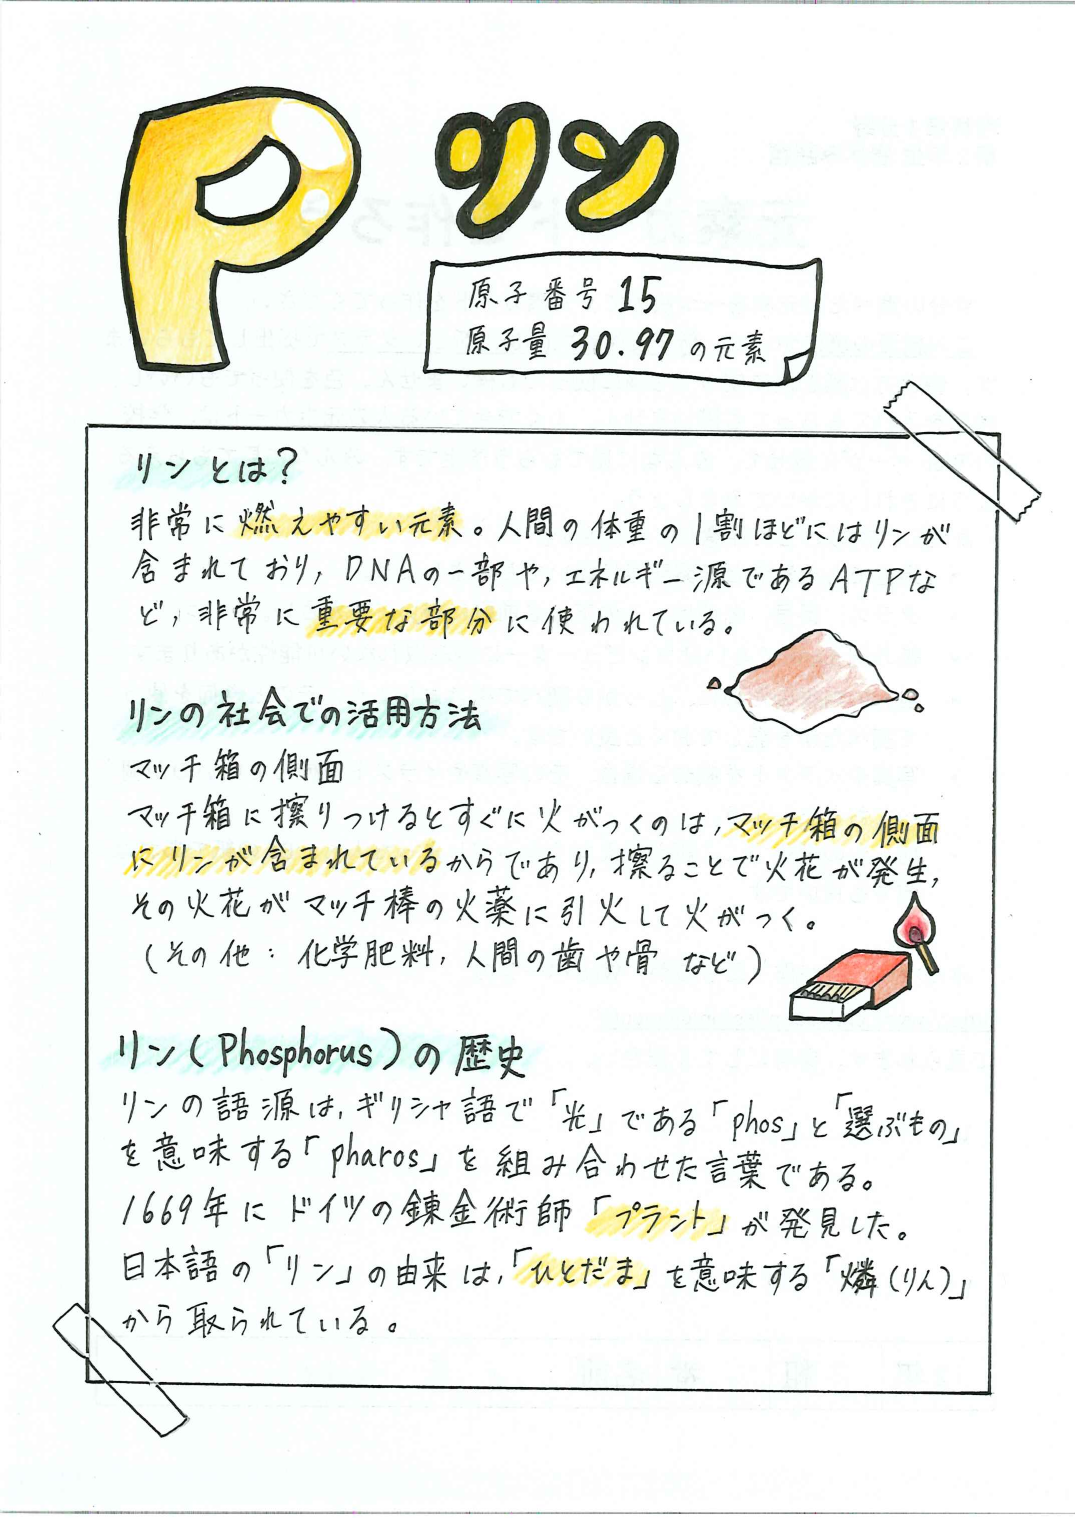 P リン
原子番号 15
原子量 30.97 の元素
リンとは？
非常に燃えやすい元素。人間の体重の1割ほどにはリンが
含まれており，DNAの一部や，エネルギー源であるATPな
ど，非常に重要な部分に使われている。
リンの社会での活用方法
マッチ箱の側面
マッチ箱に擦りつけるとすぐに火がつくのは，マッチ箱の側面
にリンが含まれているからであり，擦ることで火花が発生，
その火花がマッチ棒の火薬に引火して火がつく。
（その他：化学肥料，人間の歯や骨 など）
リン（Phosphorus）の歴史
リンの語源は，ギリシャ語で「光」である「phos」と「選ぶもの」
を意味する「pharos」を組み合わせた言葉である。
1669年にドイツの錬金術師「プラント」が発見した。
日本語の「リン」の由来は，「ひとだま」を意味する「燐（りん）」
から取られている。